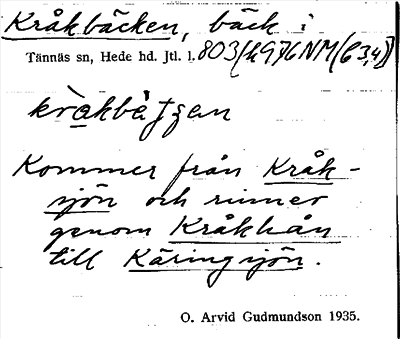 Kråkbäcken, bäck i
Tännäs sn, Hede hd. Jtl. l. 803/4976NM(C3,4)
Kommer från Kråk-
sjön och rinner
genom Kråkhån
till Käringsjön.
O. Arvid Gudmundson 1935.